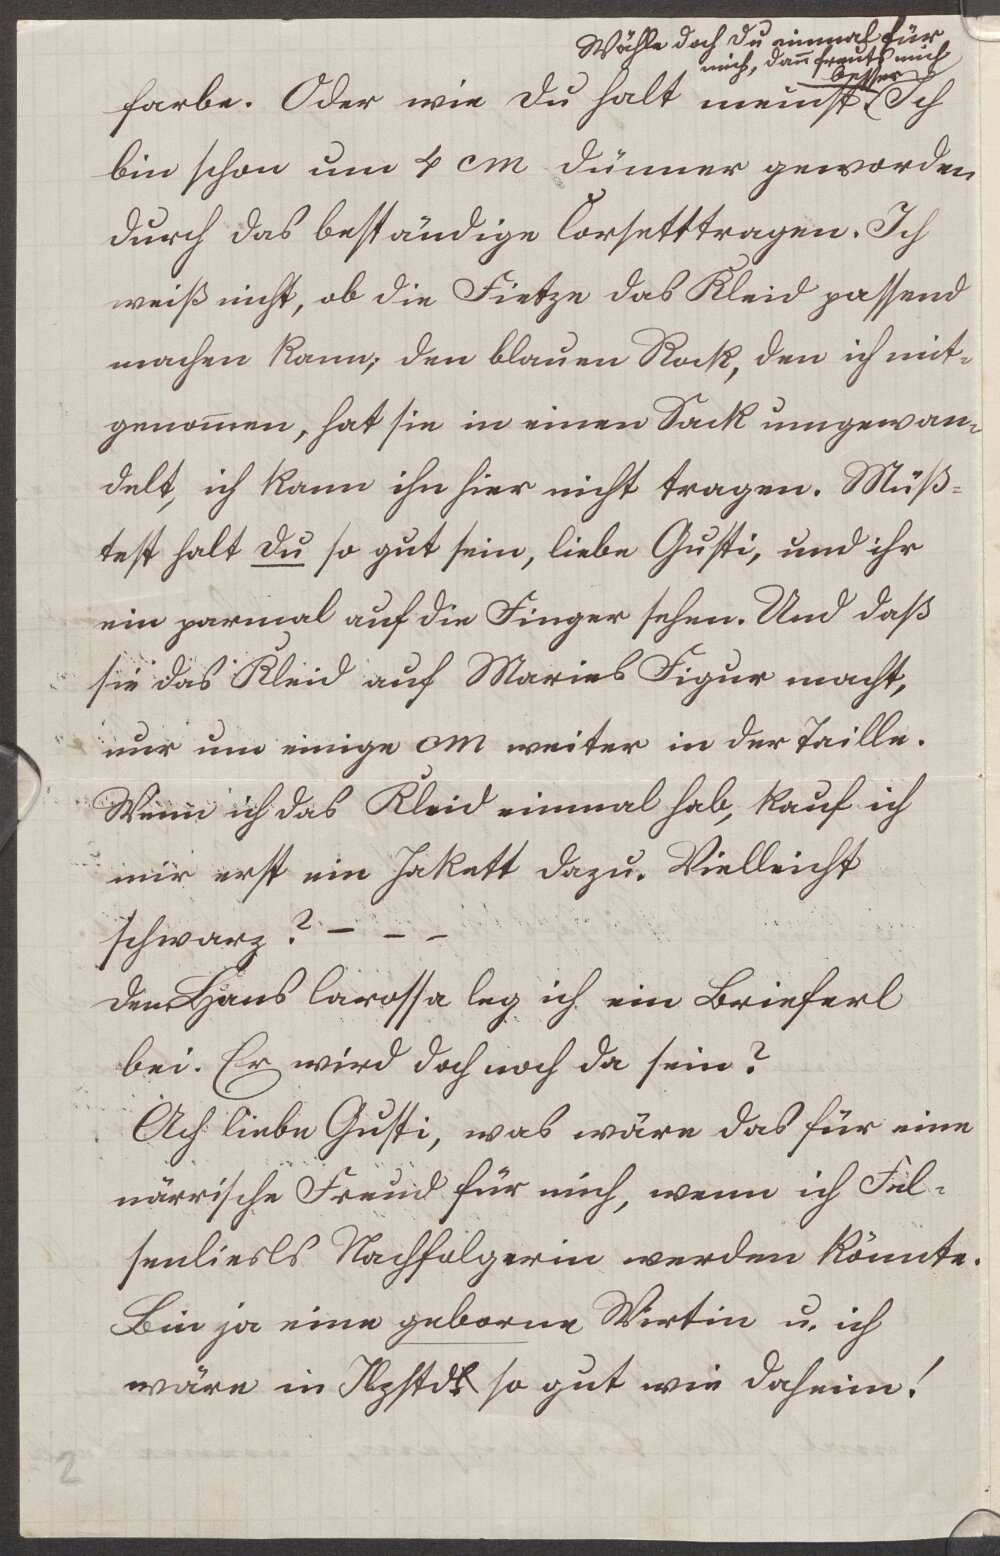 Wähle doch Du einmal für
mich, dan̅ freuts mich
besser
farbe. Oder wie Du halt meinst. (Ich
bin schon um 4 cm dünner geworden
durch das beständige Corsetttragen. Ich
weiß nicht, ob die Fietze das Kleid passend
machen kann; den blauen Rock, den ich mit=
genom̅en, hat sie in einen Sack umgewan=
delt, ich kann ihn hier nicht tragen. Müß=
test halt Du so gut sein, liebe Gusti, und ihr
ein parmal auf die Finger sehen. Und daß
sie das Kleid auf Maries Figur macht,
nur um einige cm weiter in der Taille.
Wenn ich das Kleid einmal hab, kauf ich
mir erst ein Jakett dazu. Vielleicht
schwarz? – – –
Den Hans Carossa leg ich ein Brieferl
bei. Er wird doch noch da sein?
Ach liebe Gusti, was wäre das für eine
närrische Freud für mich, wenn ich Fel=
senliesls Nachfolgerin werden könnte.
Bin ja eine geborne Wirtin u. ich
wäre in Ilzstdt so gut wie daheim!
2